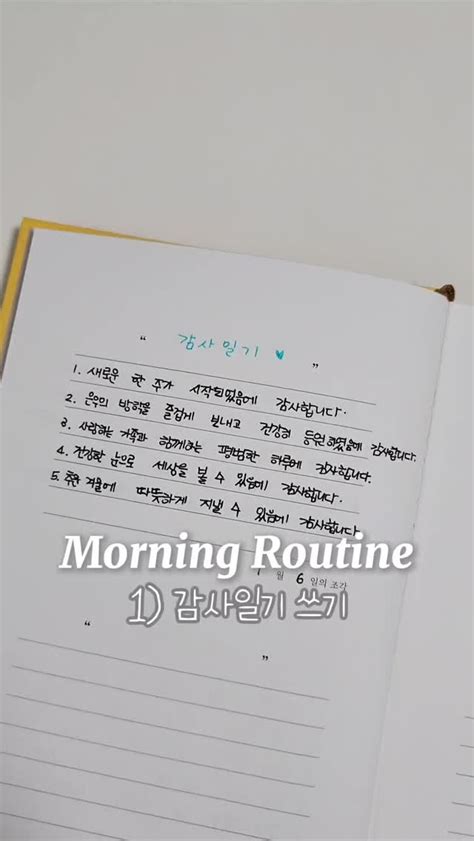 “ 감사일기 ”
1. 새로운 한 주가 시작되었음에 감사합니다.
2. 방학을 즐겁게 보내고 건강히 등원하였음에 감사합니다.
3. 사랑하는 가족과 함께하는 평범한 하루에 감사합니다.
4. 건강한 눈으로 세상을 볼 수 있음에 감사합니다.
5. 추운 겨울에 따뜻하게 지낼 수 있음에 감사합니다
Morning Routine
1 월 6 일의 조각
1) 감사일기 쓰기
“ ”